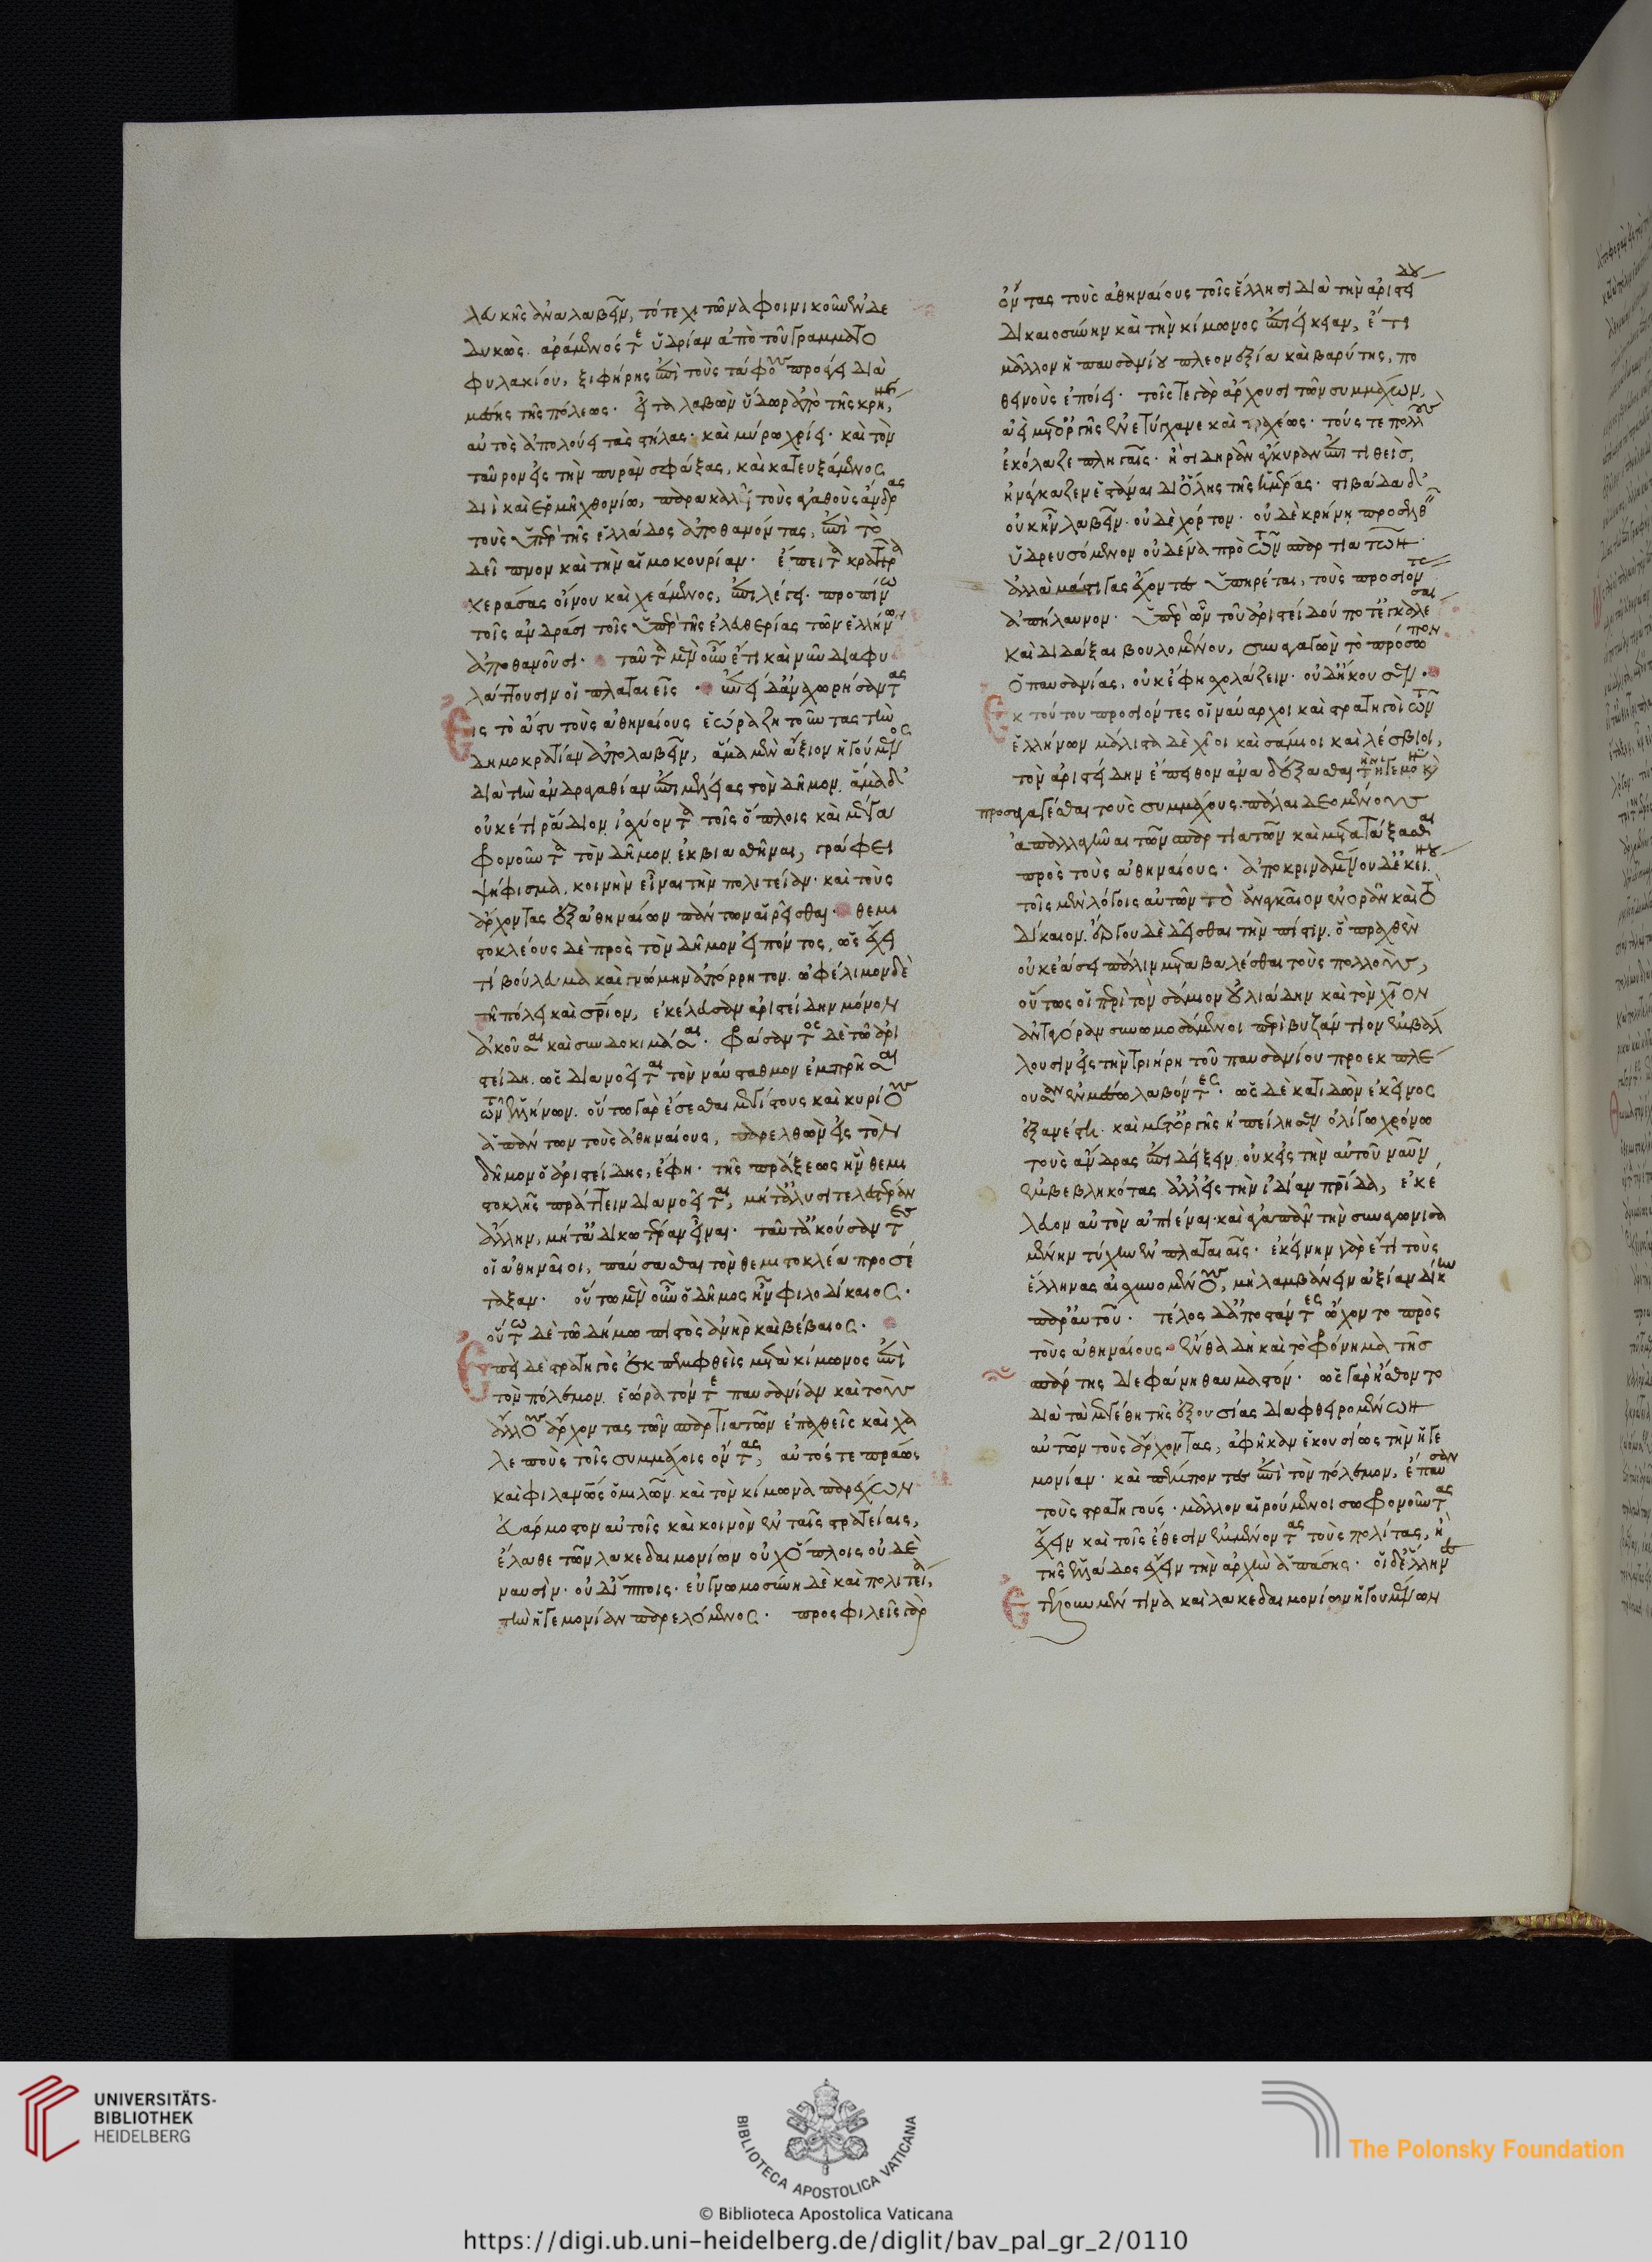 λευκῆς ἀναλαβεῖν, τότε χιτῶνα φοινικοῦν ἐνδε
δυκὼς. ἀράμενός τε ὑδρίαν ἀπὸ τοῦ γραμματο
φυλακίου, ξιφήρης ἐπὶ τοὺς τάφους προάγει διὰ
μέσης τῆς πόλεως. εἶτα λαβὼν ὕδωρ ἀπὸ τῆς κρήνης,
αὐτὸς ἀπολούει τὰς στήλας. καὶ μύρω χρίει. καὶ τὸν
ταῦρον εἰς τὴν πυρὰν σφάξας, καὶ κατευξάμενος
διὶ καὶ ἑρμῆ χθονίω, παρακαλεῖ τοὺς ἀγαθοὺς ἄνδρας
τοὺς ὑπὲρ τῆς ἑλλάδος ἀποθανόντας, ἐπὶ τὸ
δεῖπνον καὶ τὴν αἱμοκουρίαν. ἔπειτα κρατῆρα
κεράσας οἴνου καὶ χεάμενος, ἐπιλέγει. προπίνω
τοῖς ἀνδράσι τοῖς ὑπὲρ τῆς ἐλευθερίας τῶν ἑλλήνων
ἀποθανοῦσι. ταῦτα μὲν οὖν ἔτι καὶ νῦν διαφυ
λάττουσιν οἱ πλαταιεῖς. ἐπεὶ δ' ἀναχωρήσαντας
Εἰς τὸ ἄστυ τοὺς ἀθηναίους ἑώρα ζητοῦντας τὴν
δημοκρατίαν ἀπολαβεῖν, ἅμα μὲν ἄξιον ἡγούμενος
διὰ τὴν ἀνδραγαθίαν ἐπιμελείας τὸν δῆμον. ἅμα δ'
οὐκέτι ῥάδιον, ἰσχύοντα τοῖς ὅπλοις καὶ μέγα
φρονοῦντα τὸν δῆμον ἐκβιασθῆναι, γράφει
ψήφισμα, κοινὴν εἶναι τὴν πολιτείαν. καὶ τοὺς
ἄρχοντας ἐξ ἀθηναίων πάντων αἱρεῖσθαι. θεμι
στοκλέους δὲ πρὸς τὸν δῆμον εἰπόντος, ὡς ἔχει
τί βούλευμα καὶ γνώμην ἀπόρρητον. ὠφέλιμον δὲ
τῆ πόλει καὶ σωτήριον, ἐκέλευσαν ἀριστείδην μόνον
ἀκοῦσαι καὶ συνδοκιμάσαι. φράσαντος δὲ τῶ ἀρι
στείδη. ὡς διανοεῖται τὸν ναύσταθμον ἐμπρῆσαι
τῶν ἑλλήνων. οὕτω γὰρ ἔσεσθαι μεγίστους καὶ κυρίους
ἁπάντων τοὺς ἀθηναίους, παρελθὼν εἰς τὸν
δῆμον ὁ ἀριστείδης, ἔφη. τῆς πράξεως ἣν θεμι
στοκλῆς πράττειν διανοεῖται, μήτ' ἄλυσιτελεστέραν
ἄλλην, μήτ' ἀδικωτέραν εἶναι. ταῦτ' ἀκούσαντες
οἱ ἀθηναῖοι, παύσασθαι τὸν θεμιστοκλέα προσέ
ταξαν. οὕτω μὲν οὖν ὁ δῆμος ἦν φιλοδίκαιος.
οὕτω δὲ τῶ δήμω πιστὸς ἀνὴρ καὶ βέβαιος.
Ἐπεὶ δὲ στρατηγὸς ἐκπεμφθεὶς μετὰ κίμωνος ἐπὶ
τὸν πόλεμον. ἑώρα τόν τε παυσανίαν καὶ τοὺς
ἄλλους ἄρχοντας τῶν σπαρτιατῶν ἐπαχθεῖς καὶ χα
λεποὺς τοῖς συμμάχοις ὄντας, αὐτός τε πράως
καὶ φιλανθρώπως ὁμιλῶν. καὶ τὸν κίμωνα παρέχων
εὐάρμοστον αὐτοῖς καὶ κοινὸν ἐν ταῖς στρατείαις,
ἔλαθε τῶν λακεδαιμονίων οὐχ ὅπλοις οὐδὲ
ναυσὶν. οὐδ' ἵπποις. εὐγνωμοσύνη δὲ καὶ πολιτεία,
τὴν ἡγεμονίαν παρελόμενος. προσφιλεῖς γὰρ
ὄντας τοὺς ἀθηναίους τοῖς ἕλλησι διὰ τὴν ἀριστείδου
δικαιοσύνην καὶ τὴν κίμωνος ἐπιείκειαν, ἔτι
μᾶλλον ἡ παυσανίου πλεονεξία καὶ βαρύτης, πο
θεινοὺς ἐποίει. τοῖς τε γὰρ ἄρχουσι τῶν συμμάχων,
ἀεὶ μετ' ὀργῆς ἐνετύγχανε καὶ τραχέως. τούς τε πολλοὺς
ἐκόλαζε πληγαῖς. ἢ σιδηρᾶν ἄγκυραν ἐπιτιθεὶς,
ἠνάγκαζεν ἑστάναι δι' ὅλης τῆς ἡμέρας. στιβάδα δ'
οὐκ ἦν λαβεῖν. οὐδὲ χόρτον. οὐδὲ κρήνη προσελθεῖν
ὑδρευσόμενον οὐδένα πρὸ τῶν σπαρτιατῶν.
ἀλλὰ μάστιγας ἔχοντες ὑπηρέται, τοὺς προσιόντας
ἀπήλαυνον. ὑπὲρ ὧν τοῦ ἀριστείδου ποτ' ἐγκαλέσαι
καὶ διδάξαι βουλομένου, συναγαγὼν τὸ πρόσωπον
ὁ παυσανίας, οὐκ ἔφη σχολάζειν. οὐδ' ἤκουσεν.
Ἐκ τούτου προσιόντες οἱ ναύαρχοι καὶ στρατηγοὶ τῶν
ἑλλήνων μάλιστα δὲ χῖοι καὶ σάμιοι καὶ λέσβιοι,
τὸν ἀριστείδην ἔπειθον ἀναδέξασθαι τὴν ἡγεμονίαν κὶ
προσαγαγέσθαι τοὺς συμμάχους. πάλαι δεομένους
ἀπαλλαγῆναι τῶν σπαρτιατῶν καὶ μετατάξασθαι
πρὸς τοὺς ἀθηναίους. ἀποκριναμένου δ' ἐκείνου
τοῖς μὲν λόγοις αὐτῶν τὸ ἀναγκαῖον ἐνορᾶν καὶ τὸ
δίκαιον. ἔργου δὲ δεῖσθαι τὴν πίστιν. ὃ πραχθὲν
οὐκ ἐάσει πάλιν μεταβαλέσθαι τοὺς πολλοὺς,
οὕτως οἱ περὶ τὸν σάμιον οὐλιάδην καὶ τὸν χῖον
ἀνταγόραν συνομοσάμενοι περὶ βυζάντιον ἐμβάλ
λουσιν εἰς τὴν τριήρη τοῦ παυσανίου προεκπλέ
ουσαν ἐν μέσω λαβόντες. ὡς δὲ κατιδὼν ἐκεῖνος
ἐξανέστη. καὶ μετ' ὀργῆς ἠπείλησεν ὀλίγω χρόνω
τοὺς ἄνδρας ἐπιδείξειν οὐκ εἰς τὴν αὐτοῦ ναῦν
ἐμβεβληκότας ἀλλ' εἰς τὴν ἰδίαν πατρίδα, ἐκέ
λευον αὐτὸν ἀπιέναι. καὶ ἀγαπᾶν τὴν συναγωνισα
μένην τύχην ἐν πλαταιαῖς. ἐκείνην γὰρ ἔτι τοὺς
ἕλληνας αἰσχυνομένους, μὴ λαμβάνειν ἀξίαν δίκην
παρ' αὐτοῦ. τέλος δ' ἀποστάντες ὤχοντο πρὸς
τοὺς ἀθηναίους. ἔνθα δὴ καὶ τὸ φρόνημα τῆς
σπάρτης διεφάνη θαυμαστόν. ὡς γὰρ ἤσθοντο
διὰ τὰ μεγέθη τῆς ἐξουσίας διαφθειρομένων
αὐτῶν τοὺς ἄρχοντας, ἀφῆκαν ἑκουσίως τὴν ἡγε
μονίαν. καὶ πέμποντες ἐπὶ τὸν πόλεμον, ἐπαύσαν
τοὺς στρατηγούς. μᾶλλον αἱρούμενοι σωφρονοῦντας
ἔχειν καὶ τοῖς ἔθεσιν ἐμμένοντας τοὺς πολίτας, ἢ
τῆς ἑλλάδος ἔχειν τὴν ἀρχὴν ἁπάσης. οἱ δ' ἕλληνες
Ἐτέλουν μέν τινα καὶ λακεδαιμονίων ἡγουμένων
UNIVERSITÄTS-
BIBLIOTHEK
HEIDELBERG
BIBLIOTECA APOSTOLICA VATICANA
The Polonsky Foundation
© Biblioteca Apostolica Vaticana
https://digi.ub.uni-heidelberg.de/diglit/bav_pal_gr_2/0110